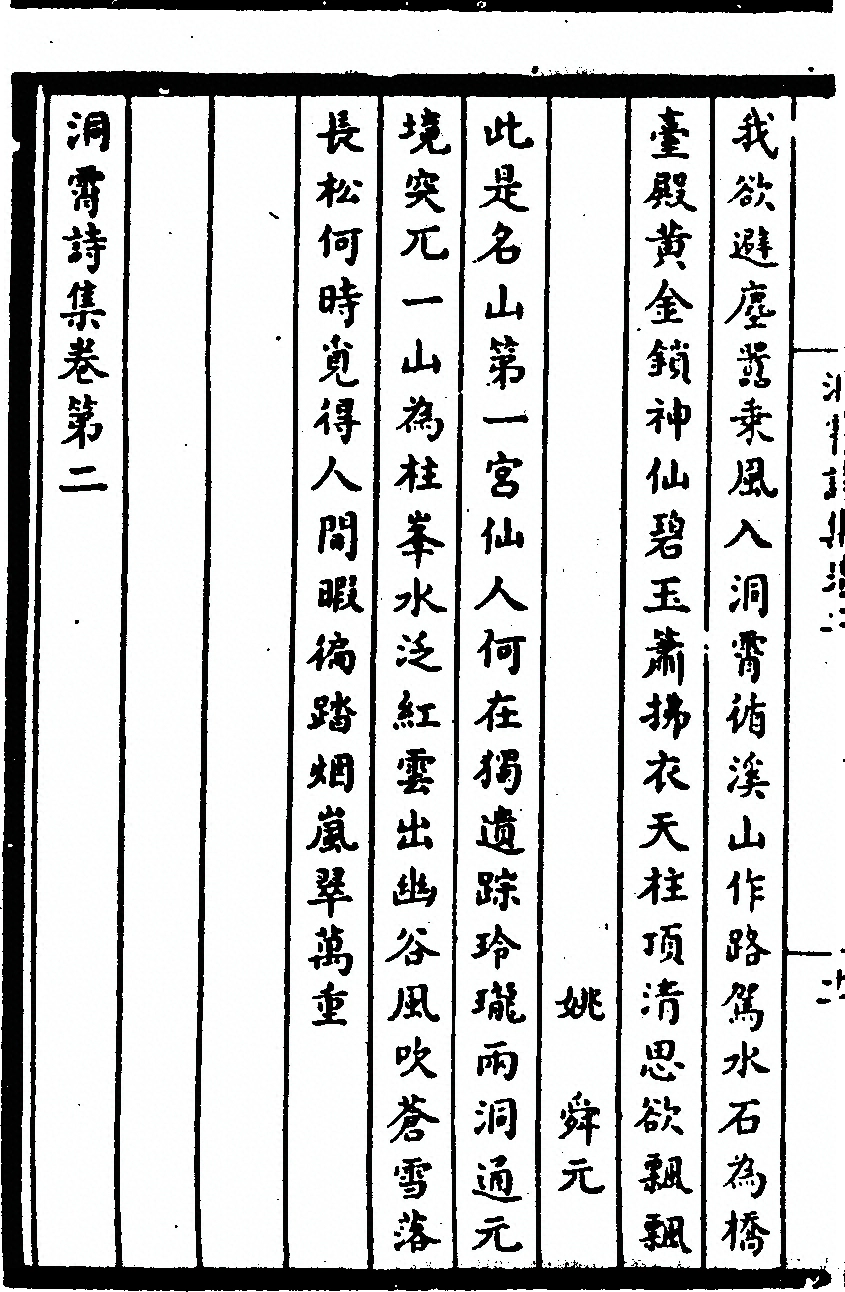 我欲避塵囂乗風入洞霄循溪山作路駕水石為橋
臺殿黄金鎖神仙碧玉簫拂衣天柱頂清思欲飄飄
姚舜元
此是名山第一宮仙人何在獨遺踪玲瓏兩洞通元
境突兀一山為柱峯水泛紅雲出幽谷風吹蒼雪落
長松何時覓得人間暇徧踏烟嵐翠萬重
洞霄詩集卷第二